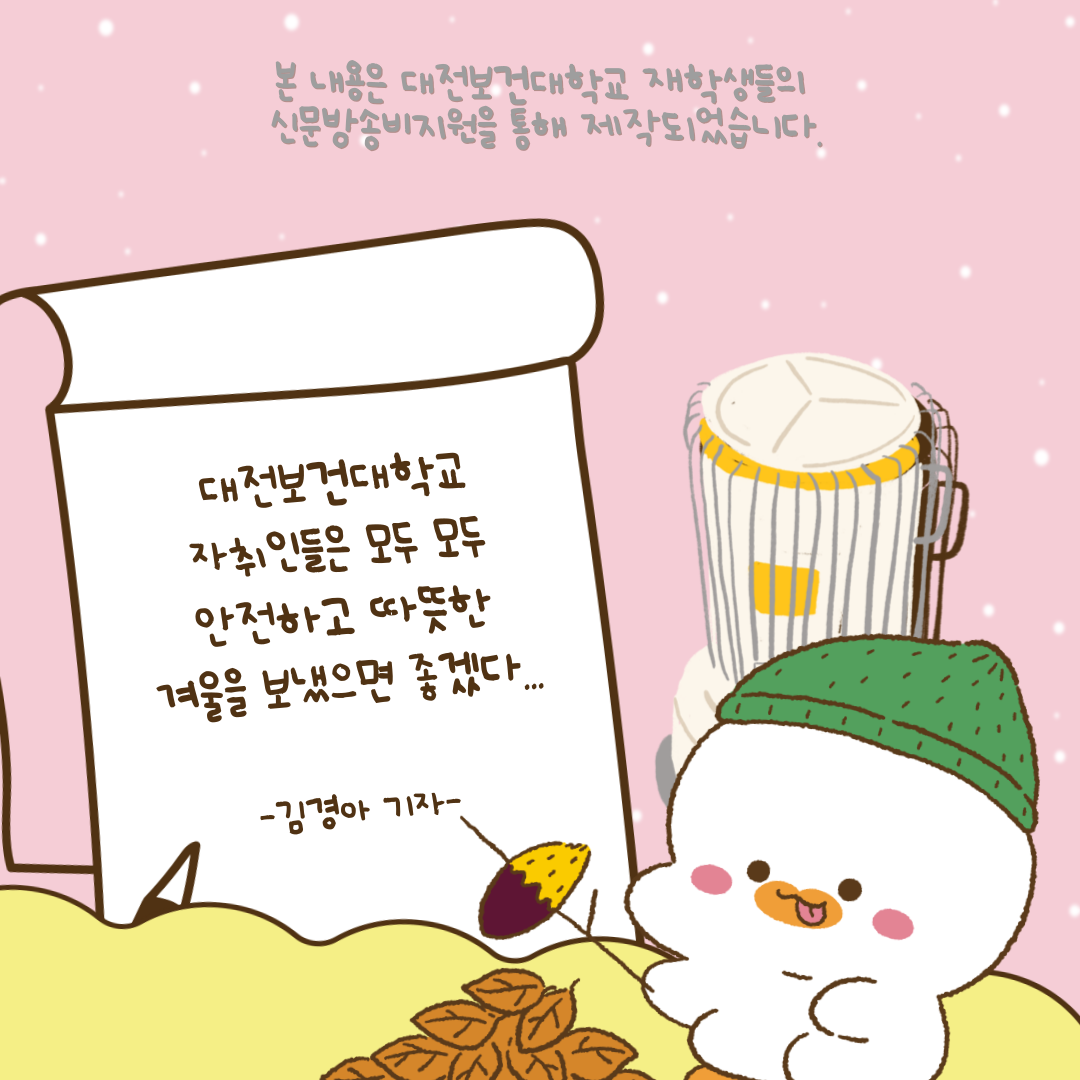 본 내용은 대전보건대학교 재학생들의
신문방송비지원을 통해 제작되었습니다.
대전보건대학교
자취인들은 모두 모두
안전하고 따뜻한
겨울을 보냈으면 좋겠다...
-김경아 기자-